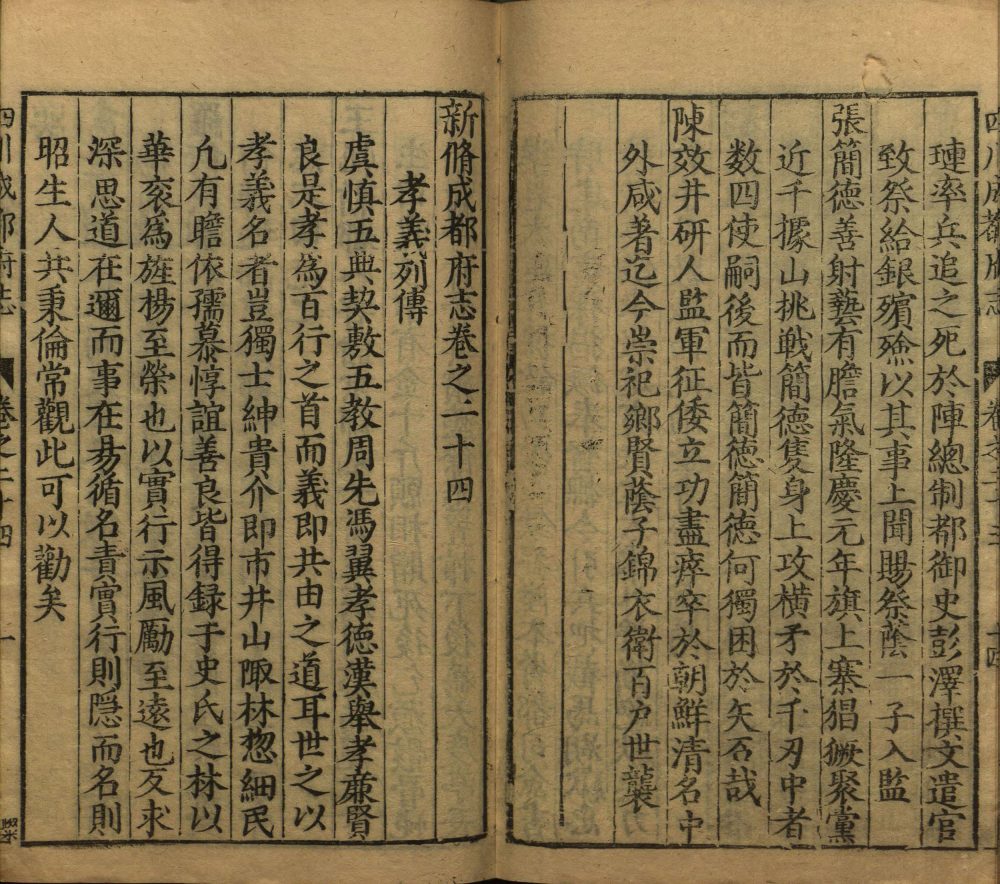 璉率兵追之死於陣總制都御史彭澤撰文遣官
致祭給銀殯殮以其事上聞賜祭蔭一子入監
張簡德善射藝有膽氣隆慶元年旗上寨猖獗聚黨
近千據山挑戰簡德隻身上攻橫矛於千刃中者
数四使嗣後而皆簡德簡德何獨困於矢石哉
陳效井研人監軍征倭立功盡瘁卒於朝鮮清名中
外咸著迄今崇祀鄉賢蔭子錦衣衛百户世襲
新脩成都府志卷之二十四
孝義列傳
虞慎五典契敷五教周先馮翼孝德漢舉孝亷賢
良是孝爲百行之首而義即共由之道耳世之以
孝義名者豈獨士紳貴介即市井山陬林惣細民
凢有瞻依孺慕惇誼善良皆得録于史氏之林以
華衮爲旌楊至榮也以實行示風勵至遠也反求
深思道在邇而事在易循名責實行則隱而名則
昭生人共秉倫常觀此可以勸矣
四川成都府志
卷之二十四
一